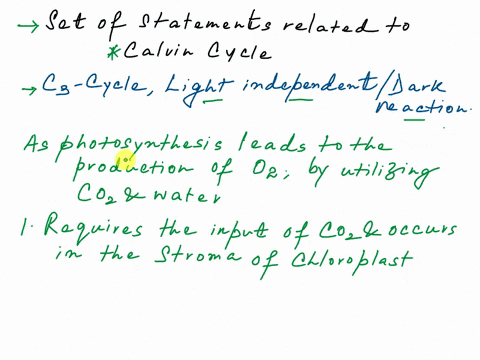 → Set of Statements related to
* Calvin Cycle
→ C3-Cycle, Light independent/Dark
reaction.
As photosynthesis leads to the
production of O2, by utilizing
CO2 & water
1. Requires the input of CO2 & occurs
in the Stroma of Chloroplast